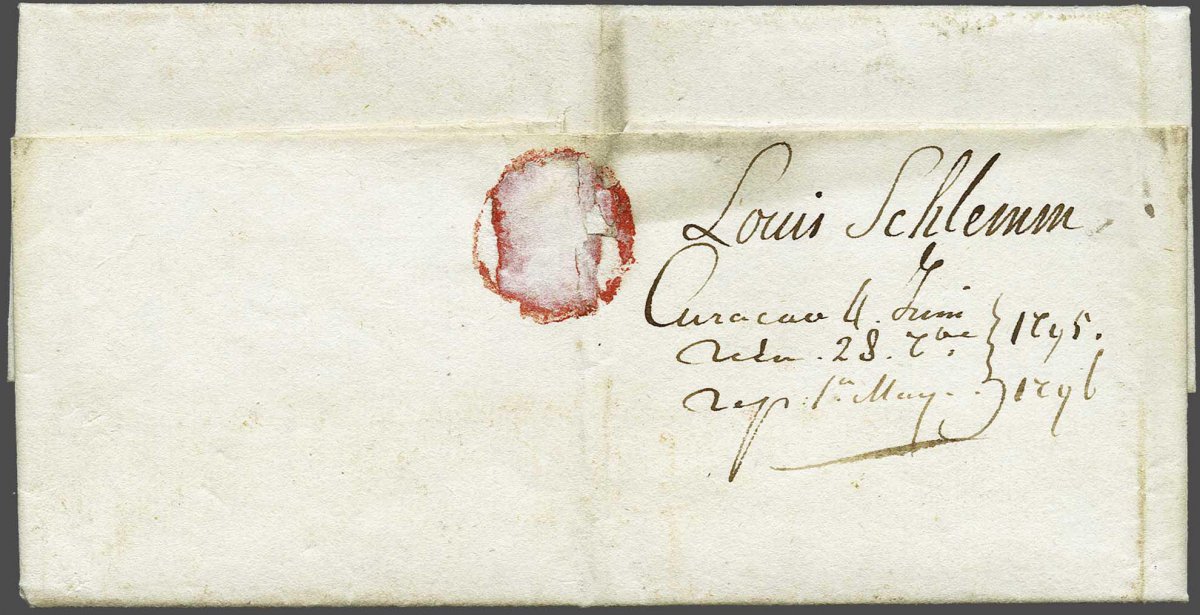 Louis Schlemm
Curacao 4 Juin
recu . 28. 7bre } 1795.
rep. 1r May . . } 1796